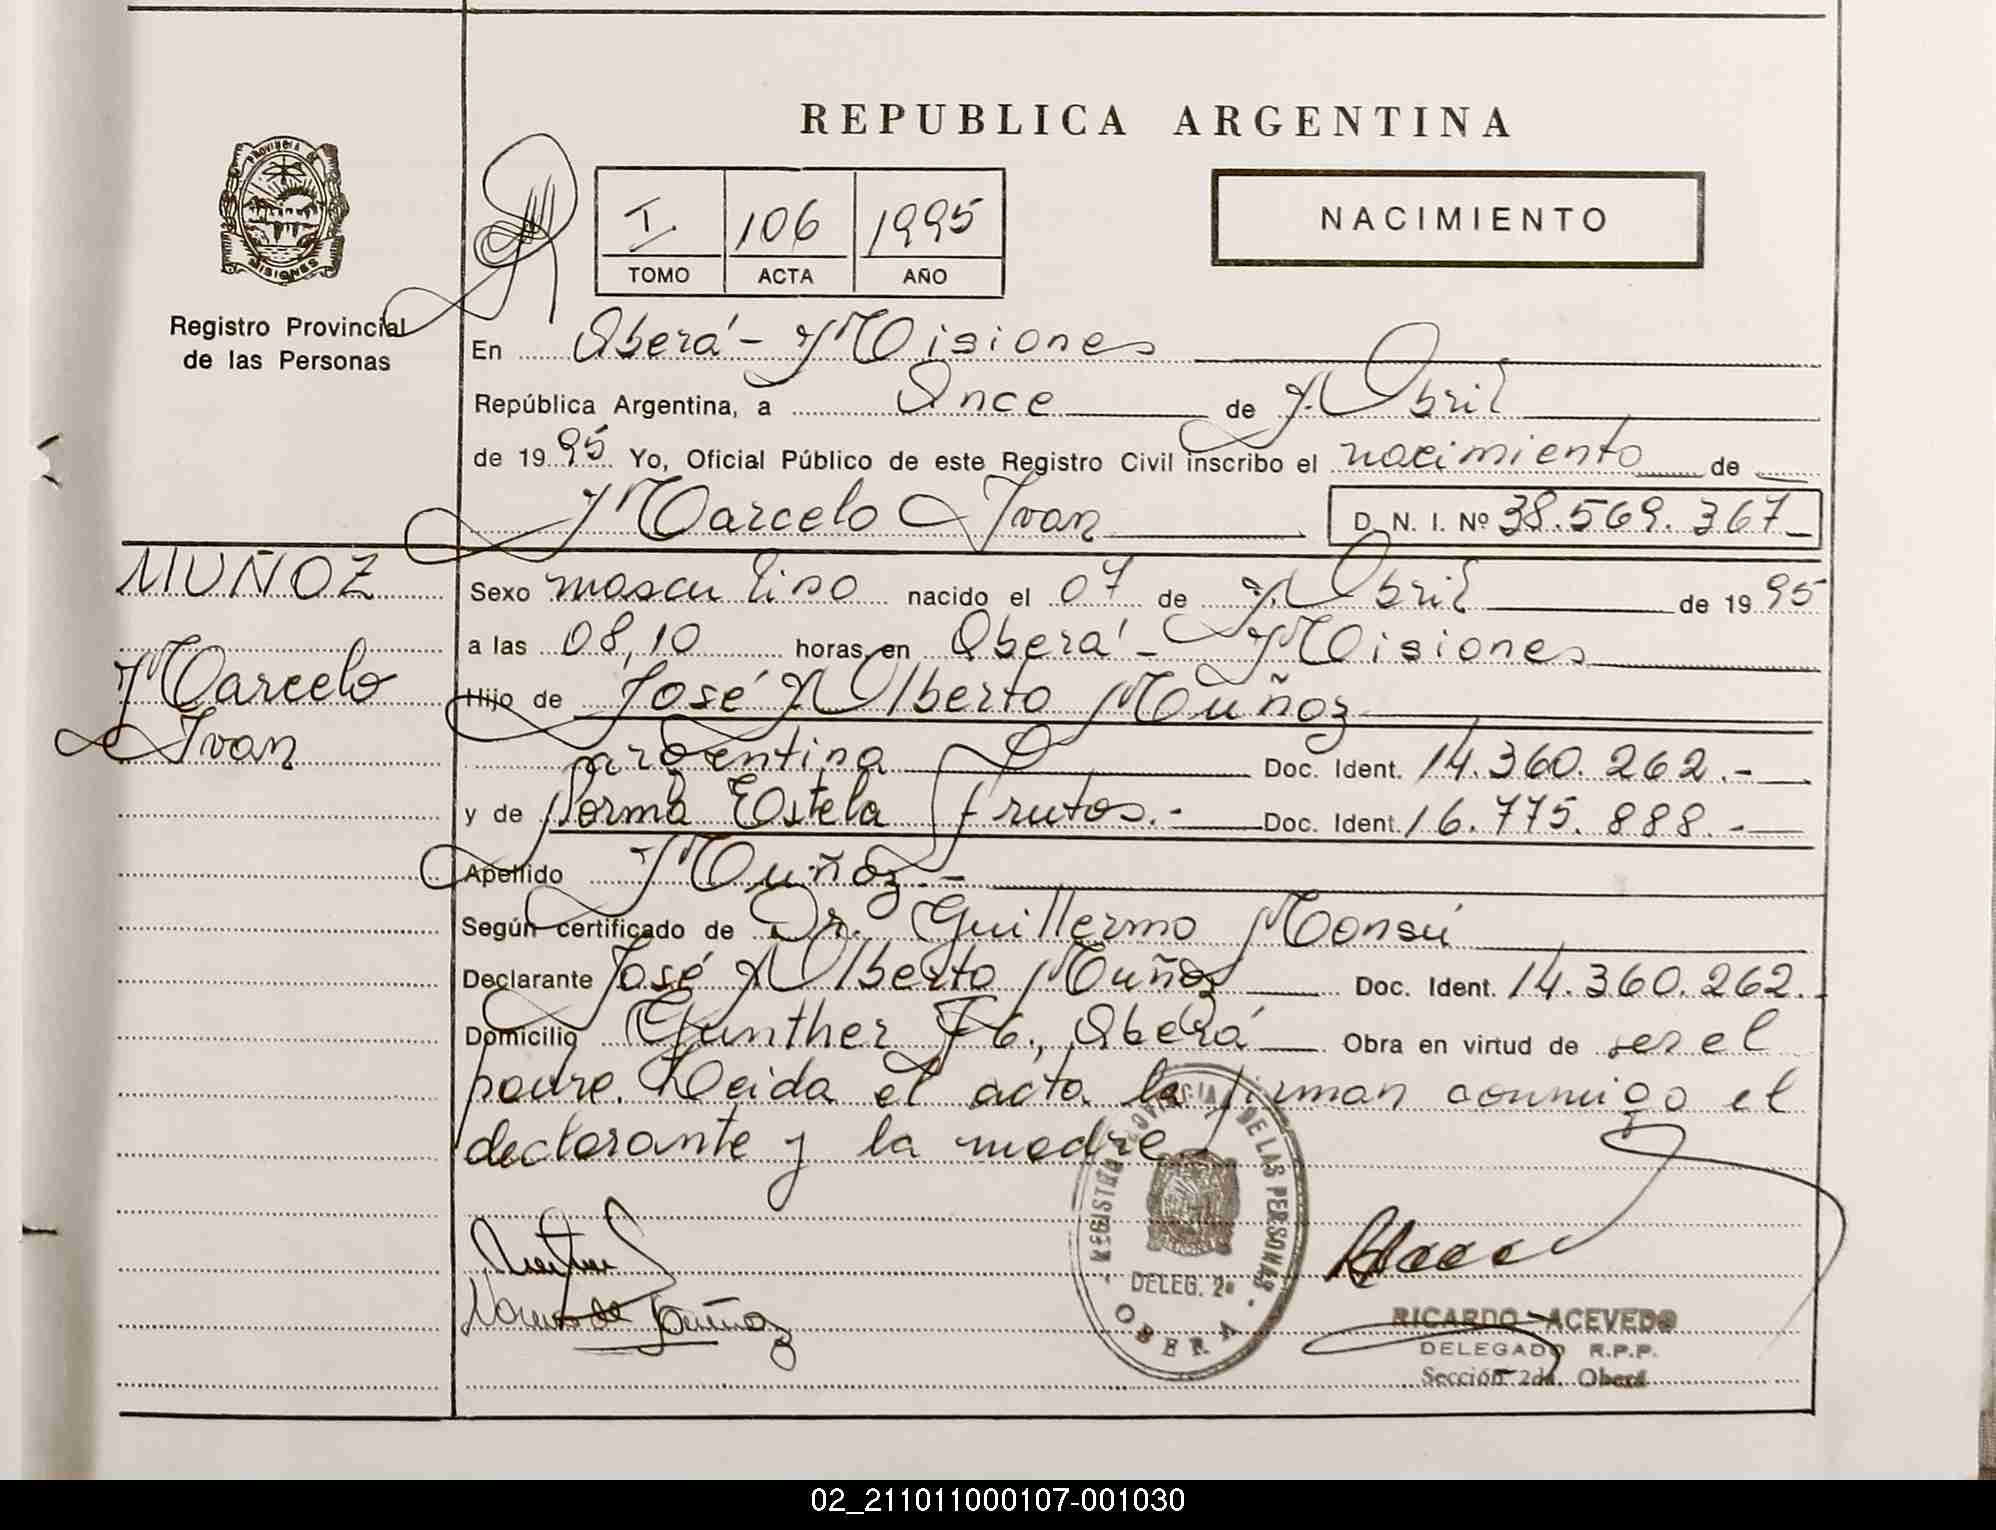 REPUBLICA ARGENTINA
PROVINCIA DE
MISIONES
Registro Provincial
de las Personas
I 106 1995
TOMO ACTA AÑO
NACIMIENTO
En Oberá - Misiones
República Argentina, a Once de Abril
de 1995 Yo, Oficial Público de este Registro Civil inscribo el nacimiento de
Marcelo Ivan D. N. I. Nº 38.569.367
MUÑOZ
Marcelo
Ivan
Sexo masculino nacido el 07 de Abril de 1995
a las 08,10 horas, en Oberá - Misiones
Hijo de José Alberto Muñoz
argentina Doc. Ident. 14.360.262.-
y de Norma Estela Frutos.- Doc. Ident. 16.775.888.-
Apellido Muñoz.-
Según certificado de Dr. Guillermo Monsú
Declarante José Alberto Muñoz Doc. Ident. 14.360.262.-
Domicilio Gunther 76., Oberá Obra en virtud de ser el
padre. Leida el acta la firman conmigo el
declarante y la madre
REGISTRO PROVINCIAL DE LAS PERSONAS
DELEG. 2ª
OBERA
Norma de Muñoz
RICARDO ACEVEDO
DELEGADO R.P.P.
Sección 2da. Oberá
02_211011000107-001030